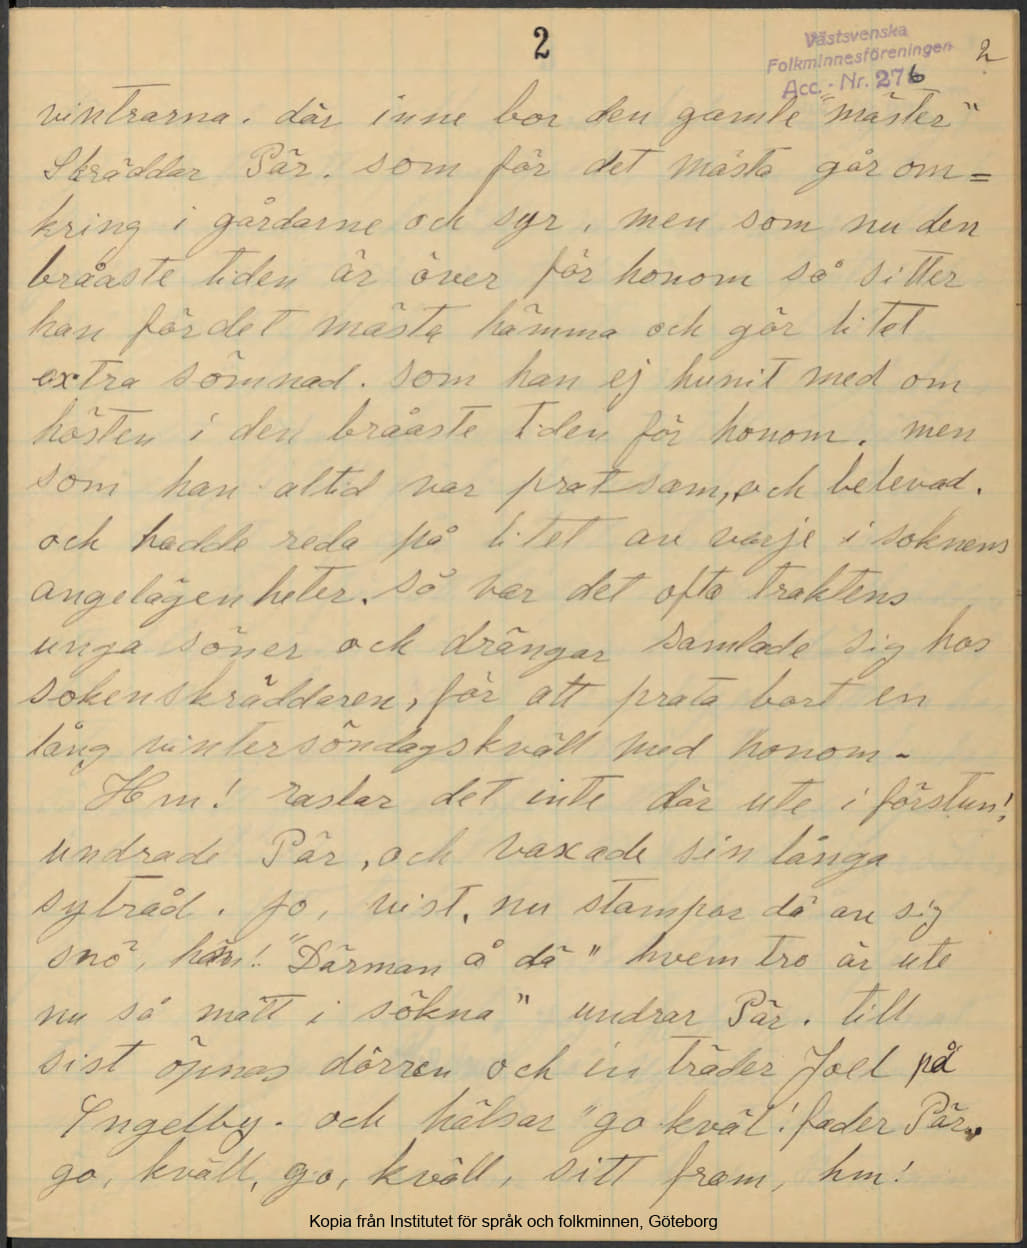 2
Västsvenska
Folkminnesföreningen
Acc.-Nr. 276
2
vintrarna. där inne bor den gamle "mäster"
Skräddar Pär. som för det mästa går om=
kring i gårdarne och syr. men som nu den
bråaste tiden är över för honom så sitter
han för det mästa hämma och gör litet
extra sömnad. som han ej hunit med om
hösten i den bråaste tiden för honom. men
som han altid var pratsam, och belevad.
och hadde reda på litet av varje i soknens
angelägenheter. så var det ofta traktens
unga söner och drängar samlade sig hos
sokenskräddaren, för att prata bort en
lång vintersöndagskväll med honom.
Hm! raslar det inte där ute i förstun!
undrade Pär, och vaxade sin långa
sytråd. jo, vist, nu stampar dä av sig
snö, hm! "Därman å dä" hvem tro är ute
nu så mått i sökna" undrar Pär. till
sist öpnas dörren och in träder Joel på
Ingelby. och hälsar "go kväl! fader Pär.
go, kväll, go, kväll, sitt fram, hm!
Kopia från Institutet för språk och folkminnen, Göteborg